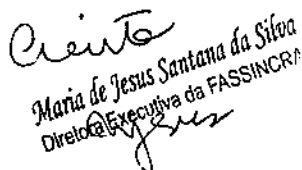 Ciente
Maria de Jesus Santana da Silva
Diretora Executiva da FASSINCRA